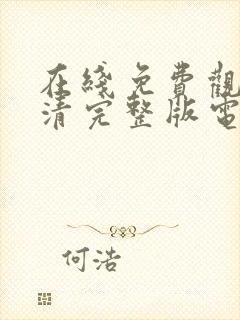 在綫免費觀
清完整版電
何浩